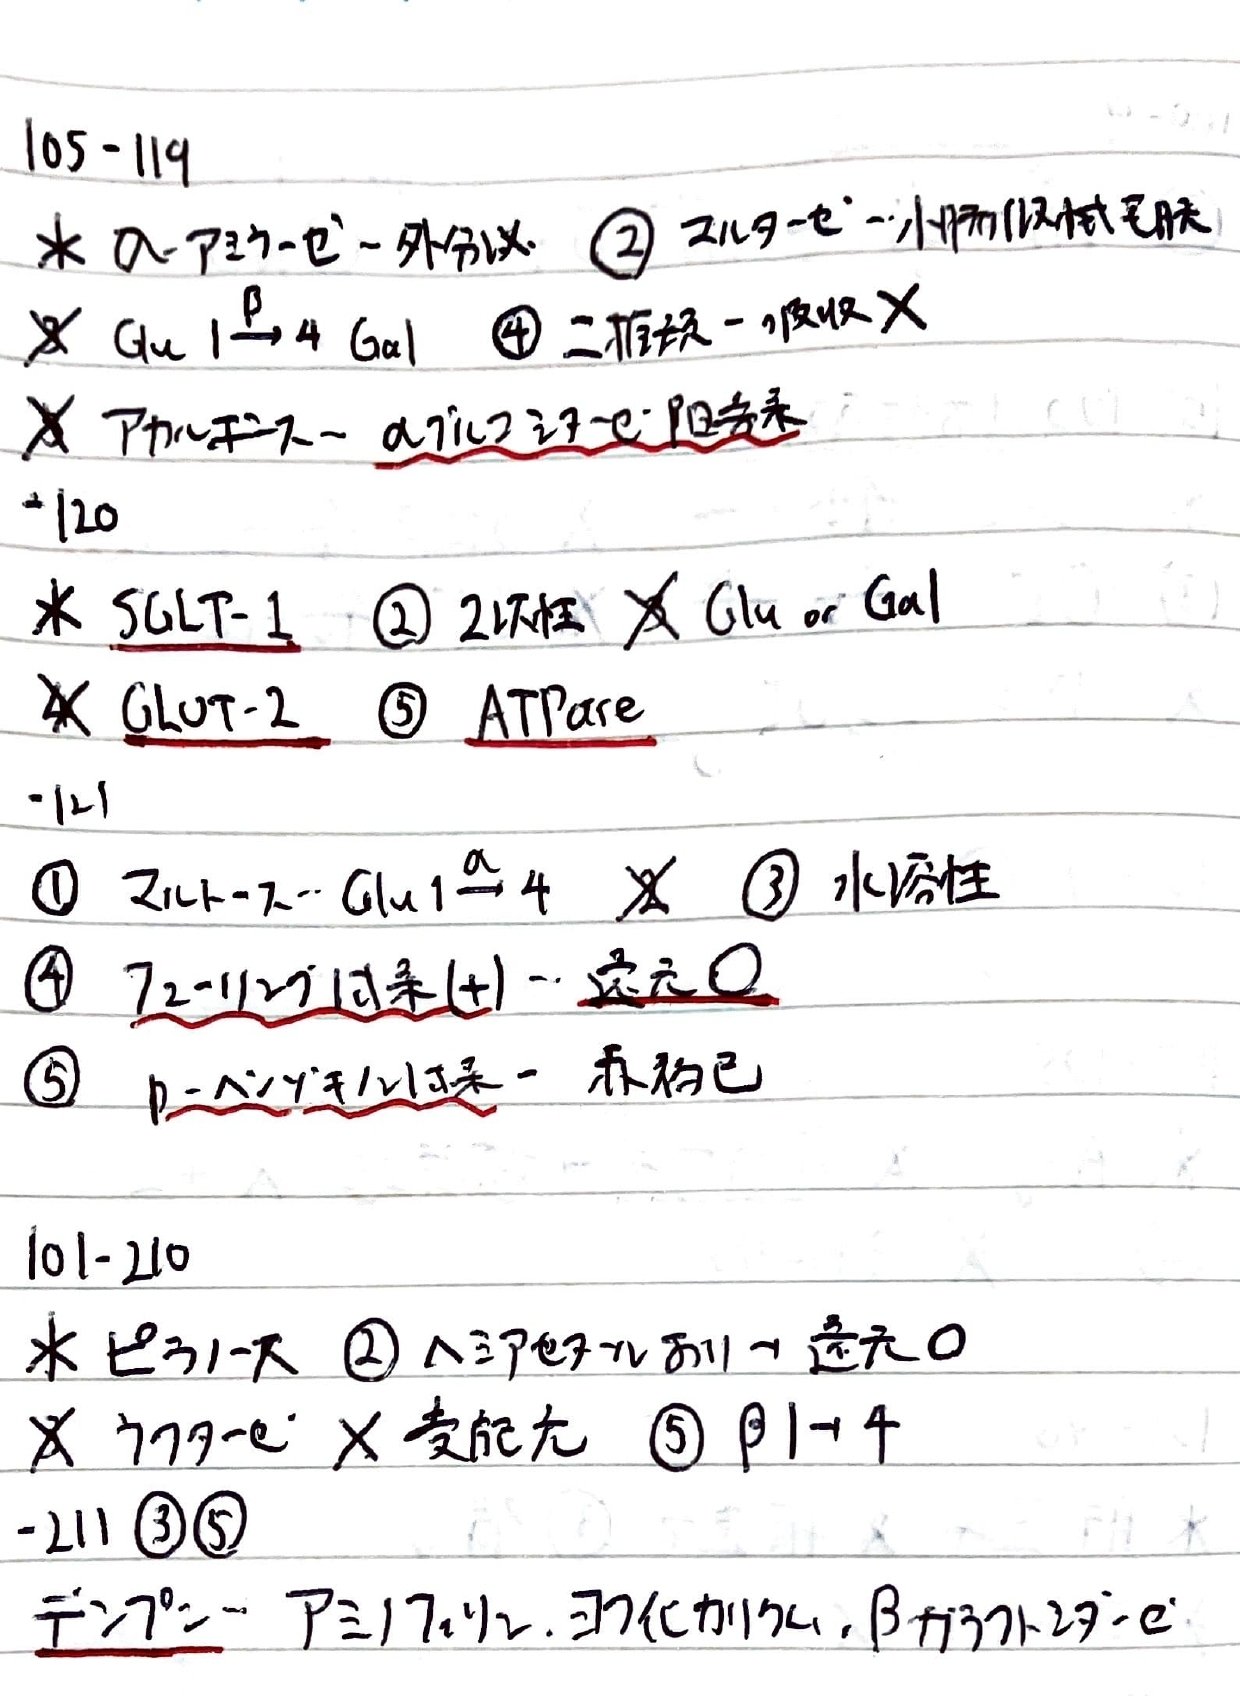 105-119
＊ α-アミラーゼ~外分泌 ② マルターゼ~小腸刷子縁微絨毛膜
✗3 Glu 1 β→ 4 Gal ④ 二糖類-吸収✗
✗5 アカルボース~αグルコシダーゼ阻害系
-120
＊ SGLT-1 ② 2次性 ✗3 Glu or Gal
✗4 GLUT-2 ⑤ ATPase
-121
① マルトース… Glu 1 α→ 4 ✗2 ③ 水溶性
④ フェーリング試条(+)… 還元○
⑤ p-ベンゾキノン試条- 赤褐色
101-210
＊ ピラノース ② ヘミアセタールあり→還元○
✗3 ラクターゼ ✗ 支配尤 ⑤ β1→4
-211 ③⑤
デンプン- アミノフィリン.ヨウ化カリウム.βガラクトシダーゼ